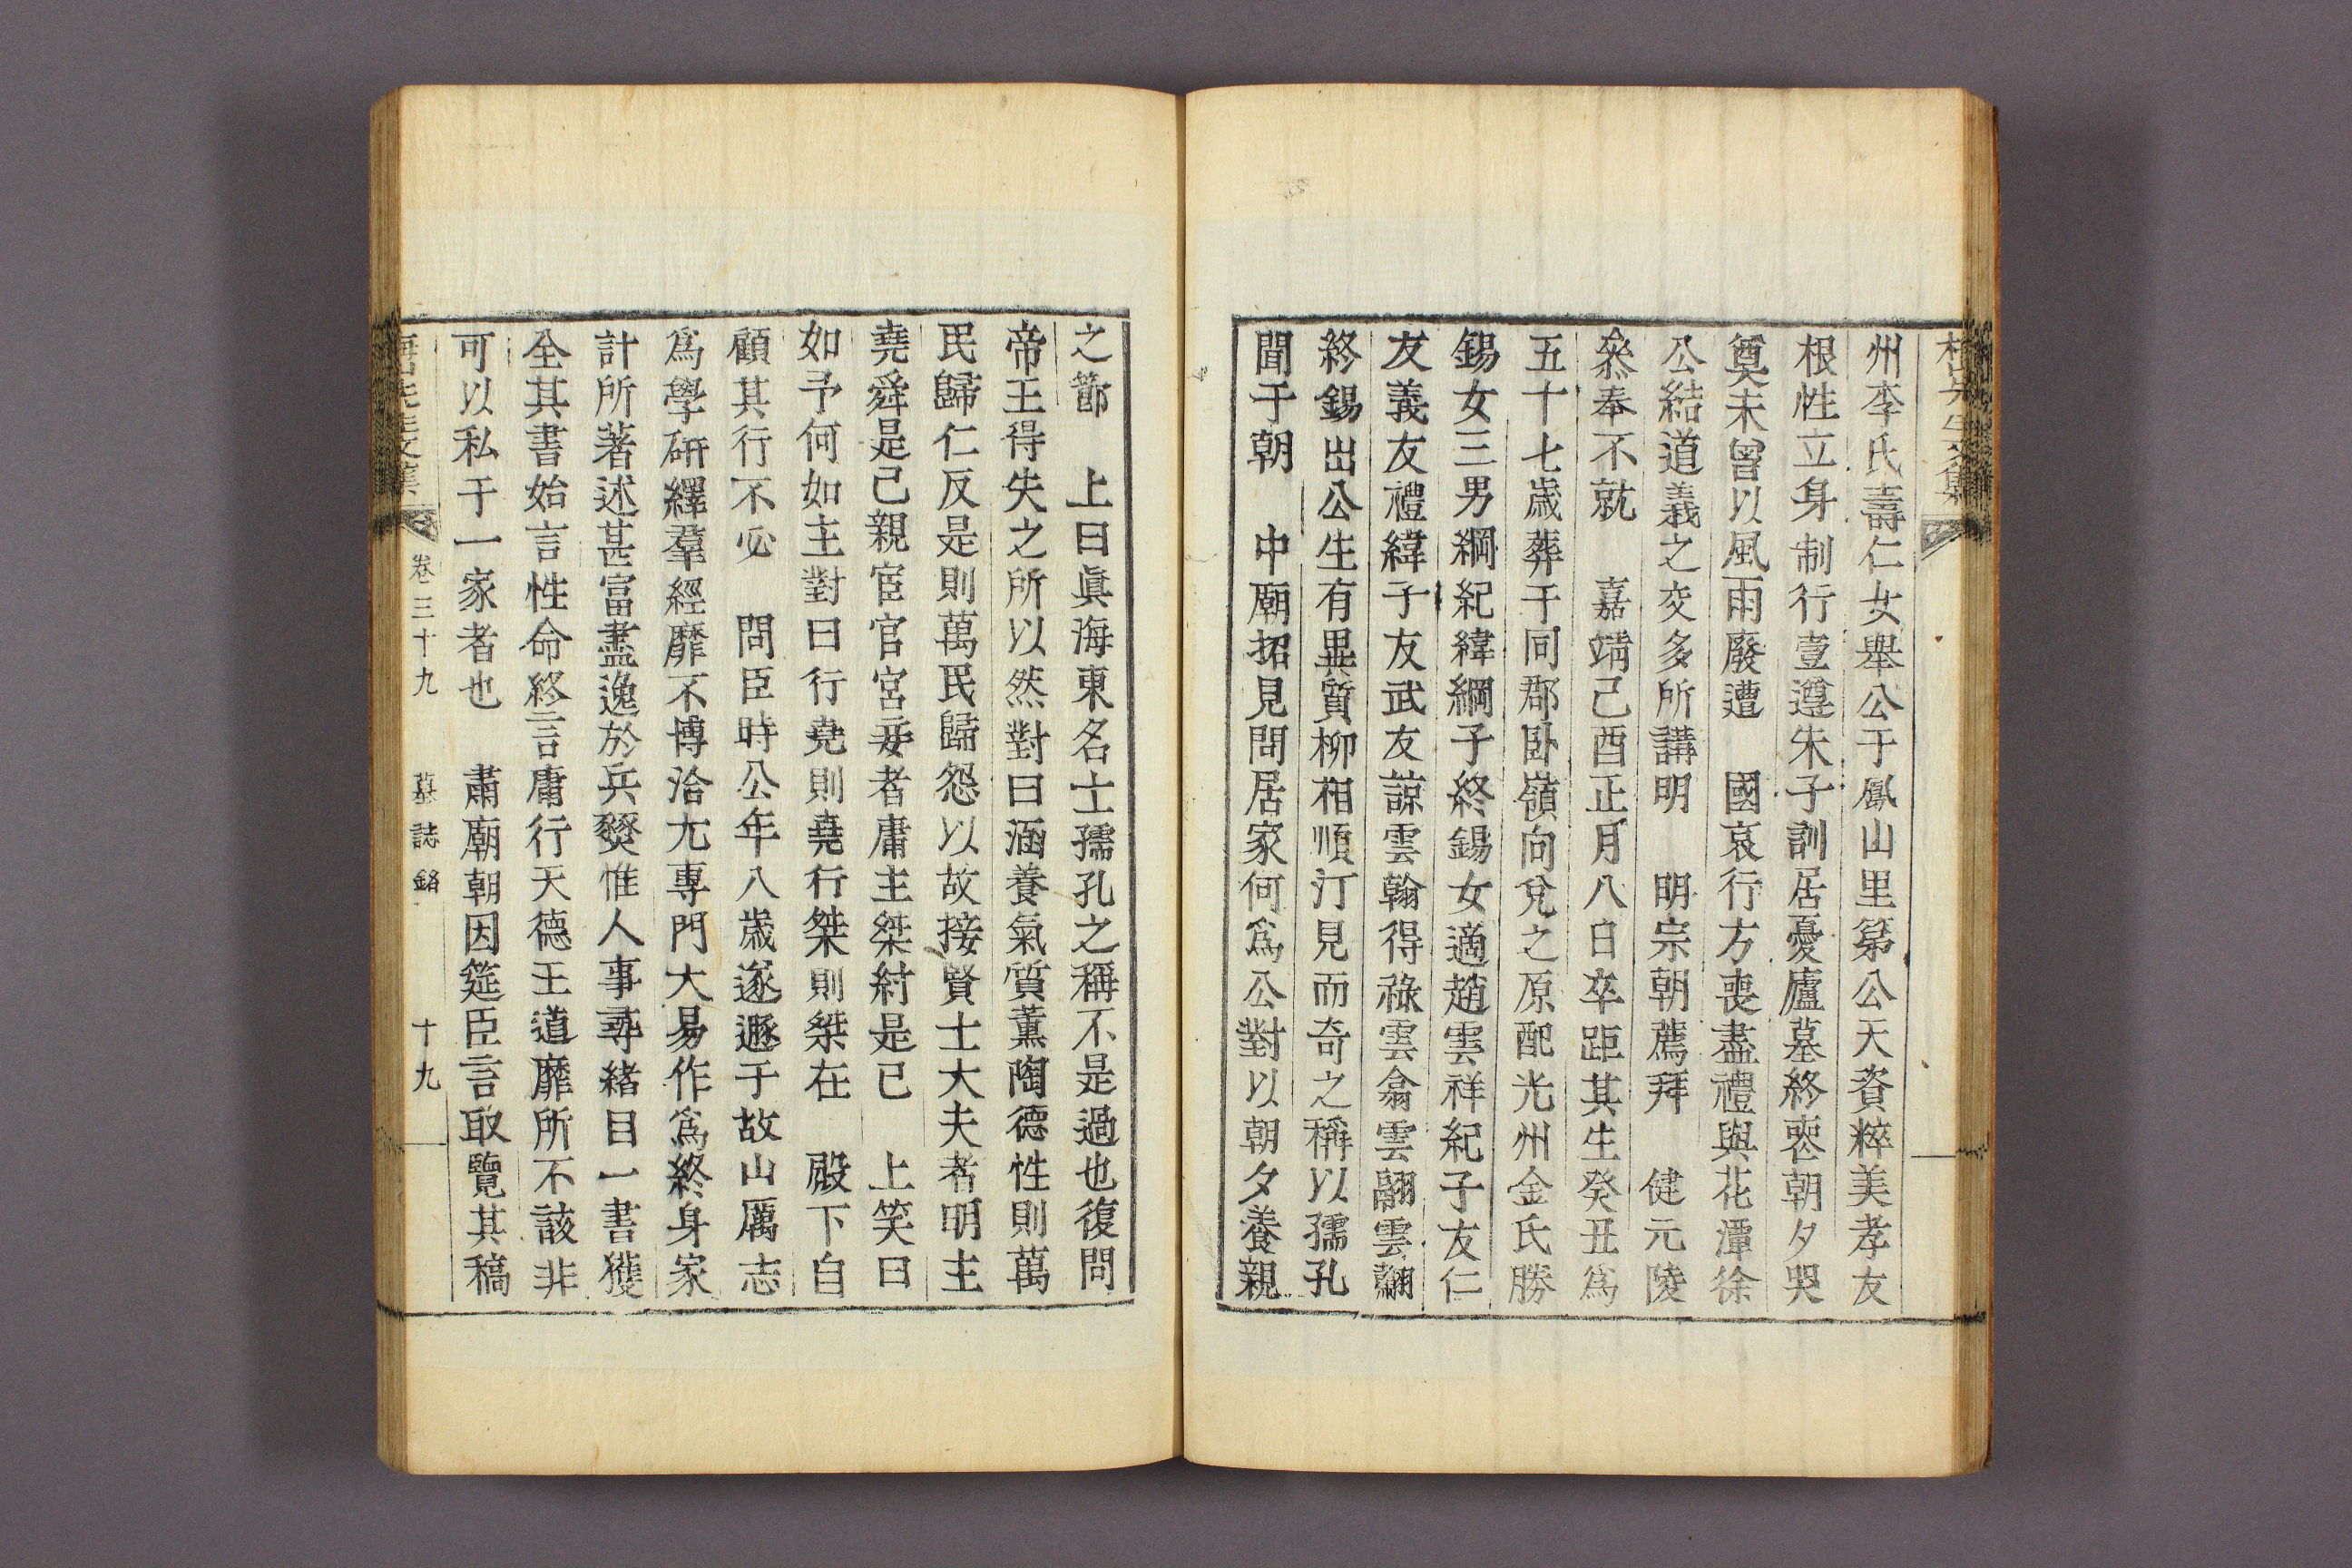 州李氏壽仁女舉公于鳳山里第公天資粹美孝友
根性立身制行壹遵朱子訓居憂廬墓終喪朝夕哭
奠未曾以風雨廢遭　國哀行方喪盡禮與花潭徐
公結道義之交多所講明　明宗朝薦拜　健元陵
叅奉不就　嘉靖己酉正月八日卒距其生癸丑爲
五十七歲葬于同郡卧嶺向兌之原配光州金氏勝
錫女三男綱紀緯綱子終錫女適趙雲祥紀子友仁
友義友禮緯子友武友諒雲翰得祿雲翕雲翮雲翻
終錫出公生有異質柳相順汀見而奇之稱以孺孔
聞于朝　中廟招見問居家何爲公對以朝夕養親
之節　上曰眞海東名士孺孔之稱不是過也復問
帝王得失之所以然對曰涵養氣質薰陶德性則萬
民歸仁反是則萬民歸怨以故接賢士大夫者明主
堯舜是己親宦官宮妾者庸主桀紂是已　上笑曰
如予何如主對曰行堯則堯行桀則桀在　殿下自
顧其行不必　問臣時公年八歲遂遯于故山厲志
爲學硏繹羣經靡不博洽尢專門大易作爲終身家
計所著述甚富盡逸於兵燹惟人事尋緖目一書獲
全其書始言性命終言庸行天德王道靡所不該非
可以私于一家者也　肅廟朝因筵臣言取覽其稿
卷三十九　墓誌銘　十九